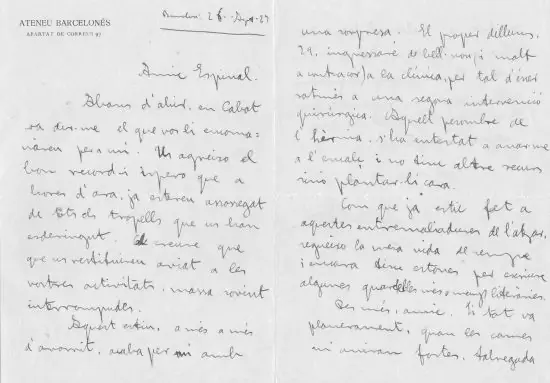 ATENEU BARCELONÉS
APARTAT DE CORREUS 97
Barcelona 26 - Sept - 27
Amic Espinal.
Abans d'ahir, en Cabot
va dir-me el que vos li encoma-
nàreu per a mi. Us agraeixo el
bon record i espero que a
hores d'ara, ja estareu assossegat
de tots els tropells que us han
esdevingut. creure que
que us restituireu aviat a les
vostres activitats, massa sovint
interrompudes.
Aquest estiu, a més a més
d'avorrit, acaba per mi amb
una sorpresa. El proper dilluns,
29, ingressaré de bell nou (i malt
a contracor) a la clínica, per tal d'ésser
sotmès a una segona intervenció
quirúrgica. Aquest
l'hèrnia, s'ha entestat a anar-me
a l'encalç i no tinc altre recurs
sinó plantar-li cara.
Com que ja estic fet a
aquestes entremaliadures de l'atzar,
segueixo la meva vida de sempre
i encara tinc estones per escriure
algunes quartilles més o menys literàries.
Res més, amic. Si tot va
planerament, quan les cames
m'aniran fortes,